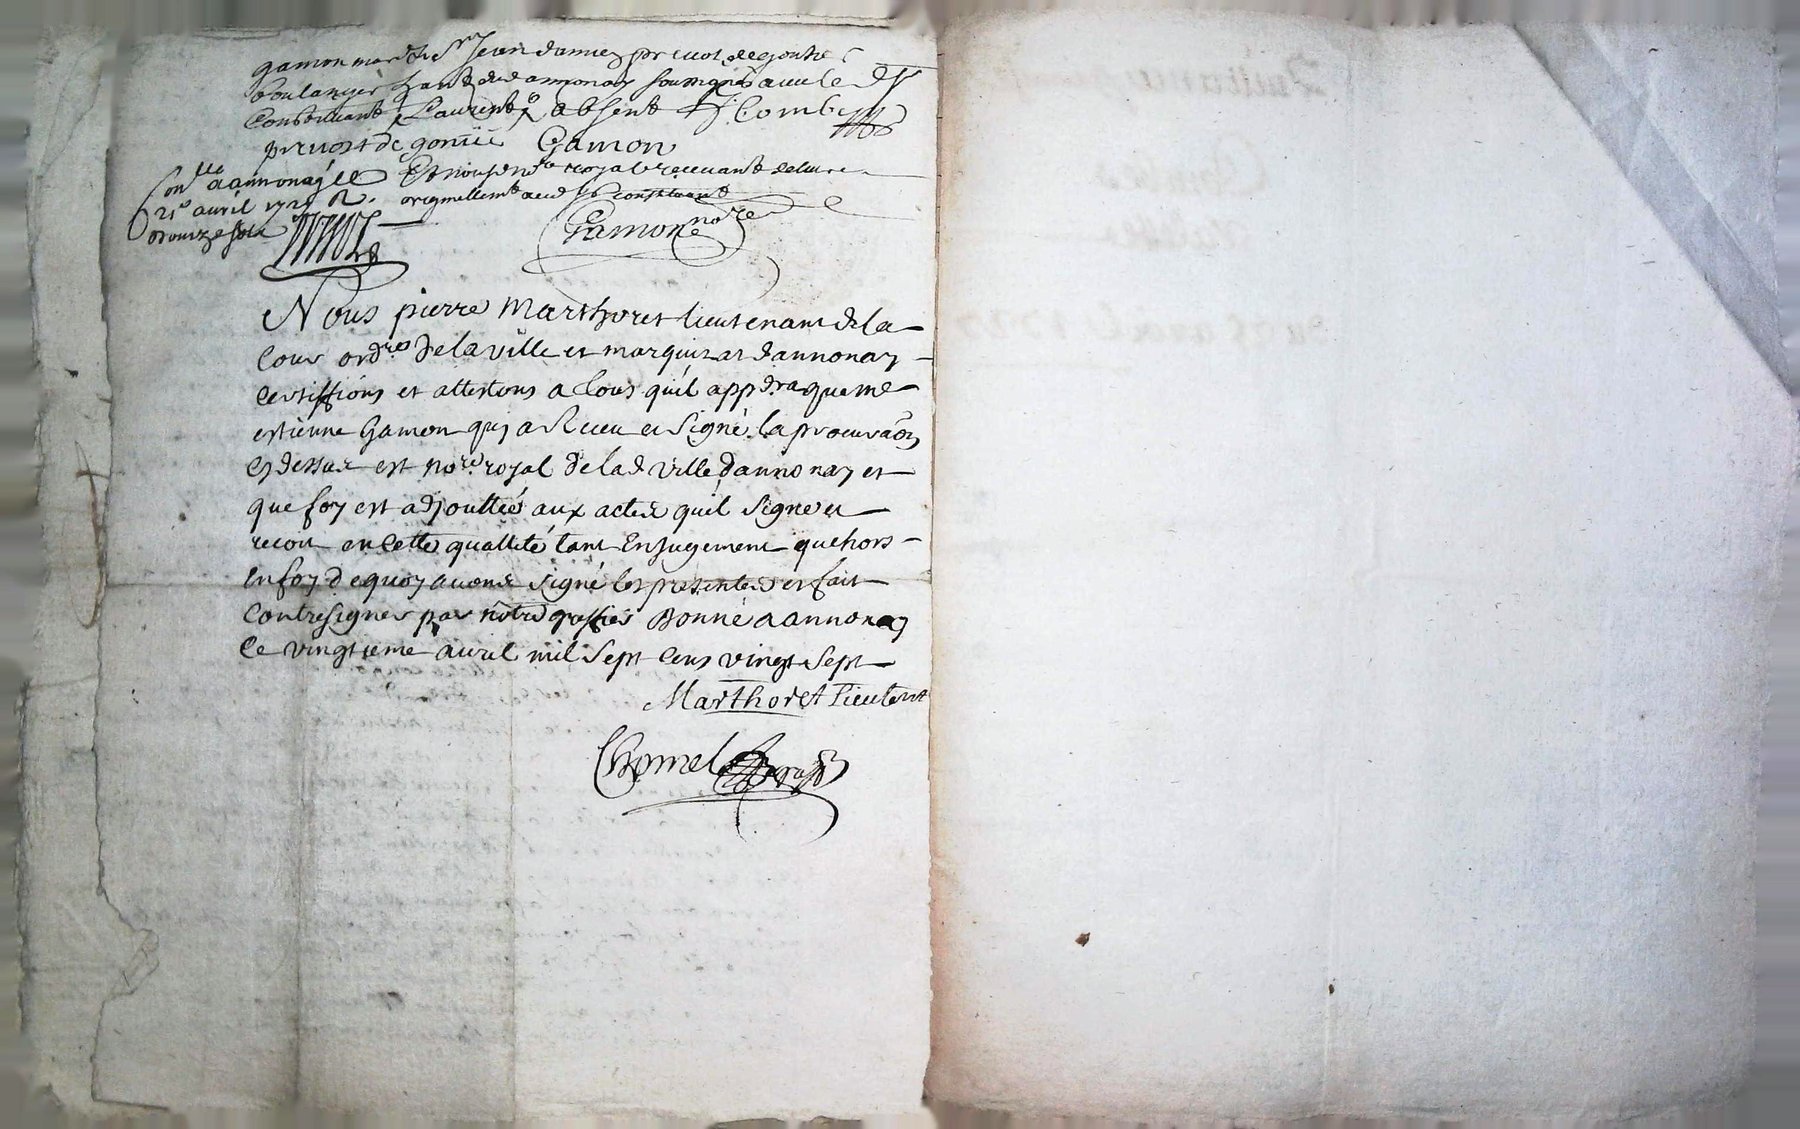 gamon mard & Sr Jean damiez prevot de gontie
boulanger habt dud annonay soussignés avec le dt
constituant Laurent absent J Combe
prevost de gontié Gamon
Et moy no.re royal recevant
originellemt aved Sr constituant
Gamon no.re
Conlle a annonay le
21e avril 1727 R.
douze sols
Nous pierre Marthoret lieutenant de la
Cour ord.res de la ville et marquizat dannonay
certiffions et attestons a tous quil app.dra que me
estienne Gamon quj a Receu et signé la procura͠on
cy dessus est no.re royal de lad ville dannonay et
que foy est adjouttée aux actes quil signe et
recoit en cette quallité tant En jugement que hors
En foy de quoy avons signé les presentes et fait
contresigner par notre greffier Donné a annonay
ce vingtieme avril mil sept cens vingt sept
Marthoret lieutent
Chomel greff